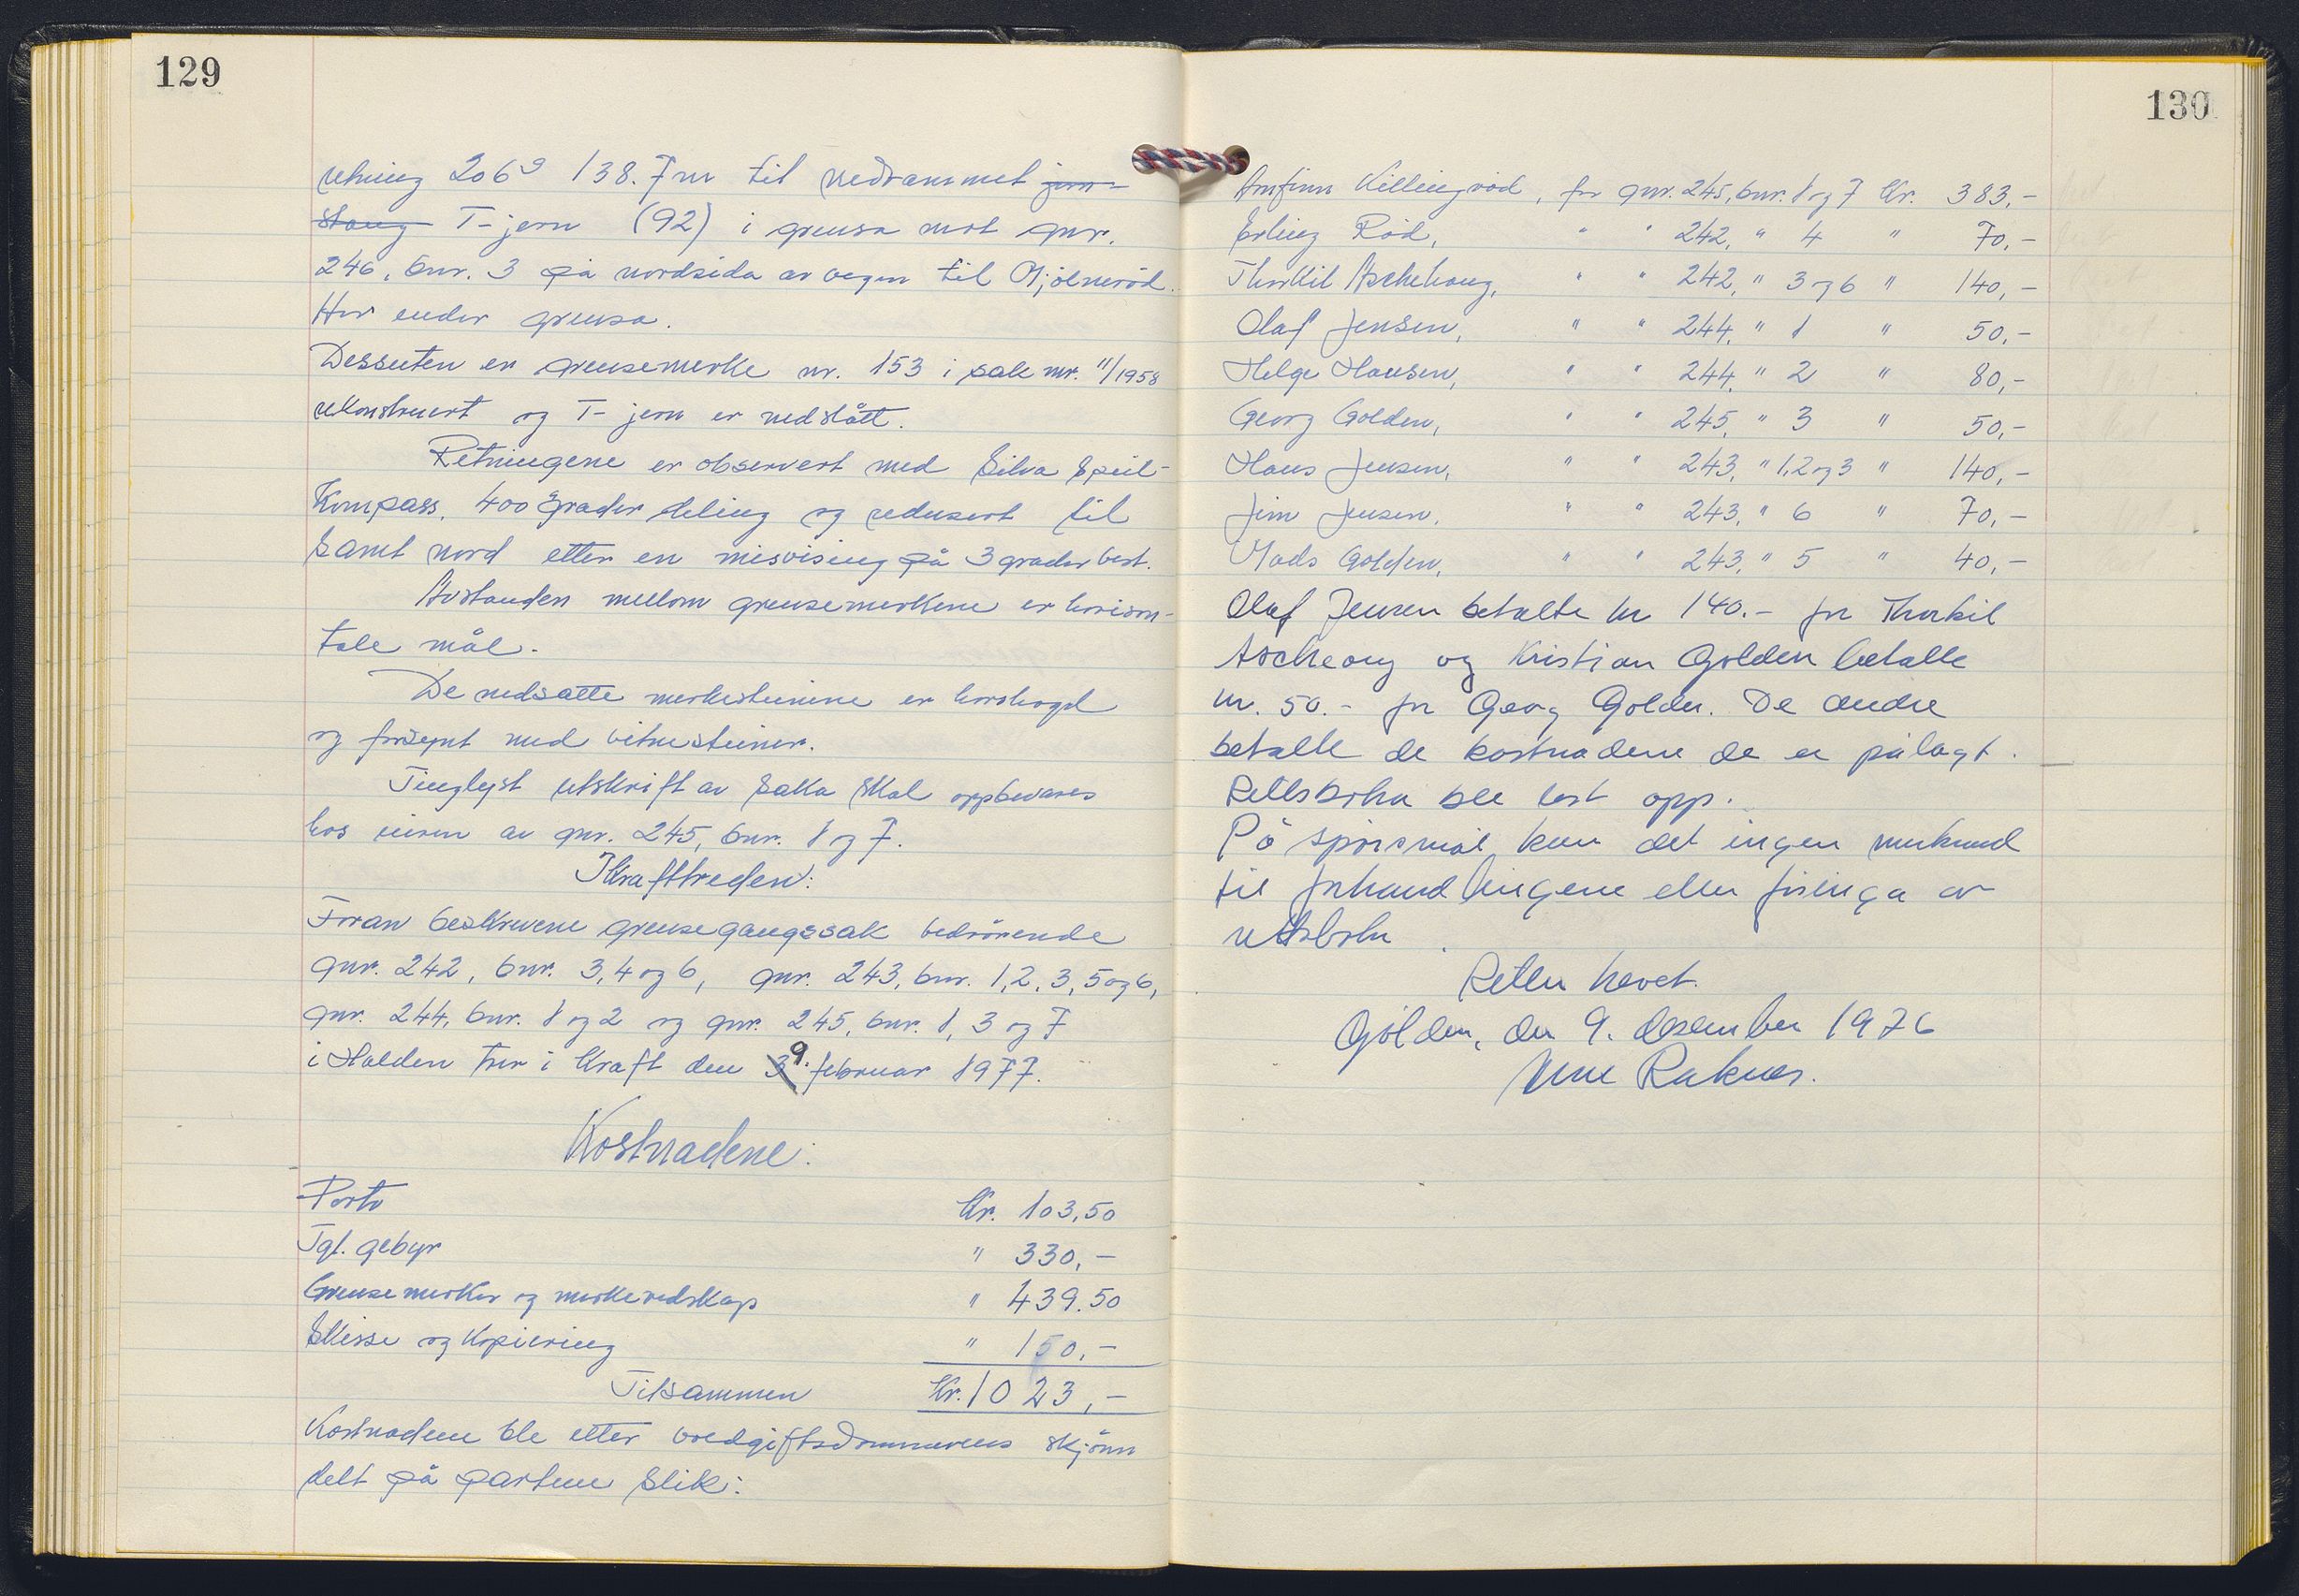 129
retning 206g 138.7m til nedrammet jern-
stang T-jern (92) i grensa mot gnr.
246, bnr. 3 på nordsida av vegen til Gjølnerød.
Her ender grensa.
Dessuten er grensemerke nr. 153 i sak nr. 11/1958
rekonstruert og T-jern er nedslått.
Retningene er observert med Silva Speil-
Kompass, 400 grader deling og redusert til
sant nord etter en misvising på 3 grader vest.
Avstanden mellom grensemerkene er horison-
tale mål.
De nedsatte merkesteinene er korshogd
og forsynt med vitnesteiner.
Tinglyst utskrift av saka skal oppbevares
hos eieren av gnr. 245, bnr. 1 og 7.
Ikrafttreden:
Foran beskrevene grensegangssak vedrørende
gnr. 242, bnr. 3, 4 og 6, gnr. 243, bnr. 1, 2, 3, 5 og 6,
gnr. 244, bnr. 1 og 2 og gnr. 245, bnr. 1, 3 og 7
i Halden trer i kraft den 9. februar 1977.
Kostnadene:
Porto Kr. 103,50
Tgl. gebyr " 330,-
Grensemerker og merkeredskap " 439.50
Skisse og kopiering " 150,-
Tilsammen Kr. 1023,-
Kostnadene ble etter voldgiftsdommerens skjønn
delt på partene slik:
130
Arnfinn Killingrød, for gnr. 245, bnr. 1 og 7 Kr. 383,-
Erling Rød, " " 242, " 4 " 70,-
Thorkil Aschehoug, " " 242, " 3 og 6 " 140,-
Olaf Jensen, " " 244, " 1 " 50,-
Helge Hansen, " " 244, " 2 " 80,-
Georg Golden, " " 245, " 3 " 50,-
Hans Jensen, " " 243, " 1, 2 og 3 " 140,-
Jim Jensen, " " 243, " 6 " 70,-
Mads Golden, " " 243, " 5 " 40,-
Olaf Jensen betalte kr 140.- for Thorkil
Ascheoug og Kristian Golden betalte
kr. 50.- for Georg Golden. De andre
betalte de kostnadene de er pålagt.
Rettsboka ble lest opp.
På spørsmål kom det ingen merknad
til forhandlingene eller føringa av
rettsboka.
Retten hevet.
Gölden, den 9. desember 1976
Raknes.